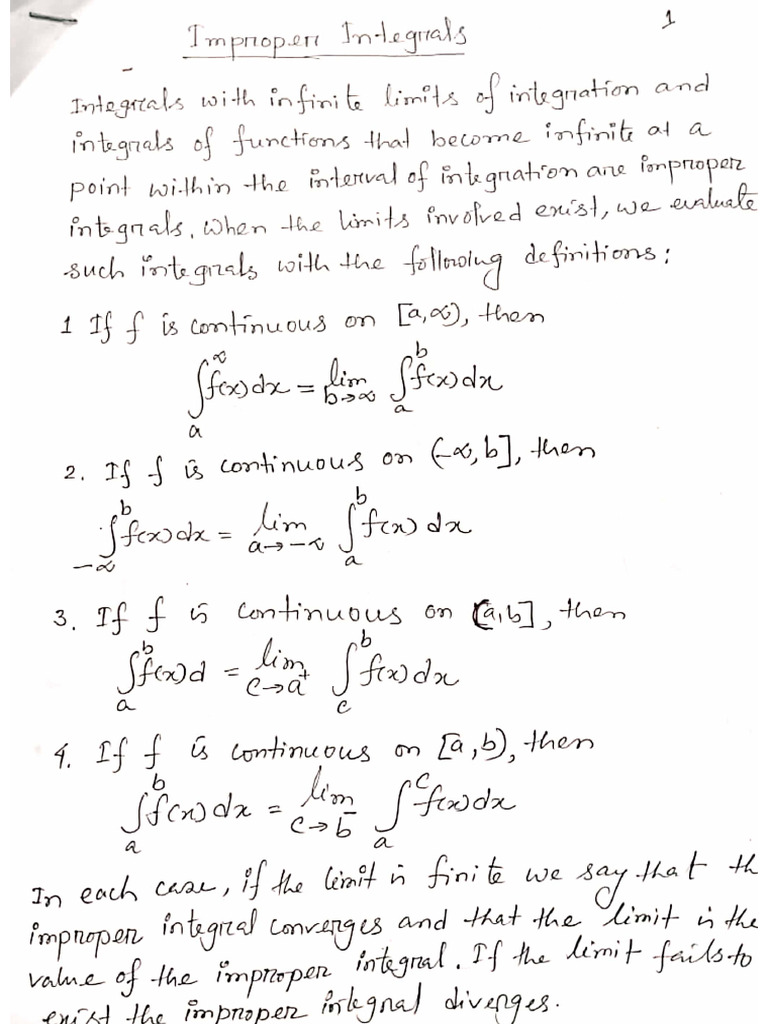 Improper Integrals
1
Integrals with infinite limits of integration and
integrals of functions that become infinite at a
point within the interval of integration are improper
integrals. When the limits involved exist, we evaluate
such integrals with the following definitions:
1 If f is continuous on [a,∞), then
∫_a^∞ f(x) dx = lim_{b→∞} ∫_a^b f(x) dx
2. If f is continuous on (-∞, b], then
∫_{-∞}^b f(x) dx = lim_{a→-∞} ∫_a^b f(x) dx
3. If f is continuous on (a,b], then
∫_a^b f(x) d = lim_{c→a^+} ∫_c^b f(x) dx
4. If f is continuous on [a,b), then
∫_a^b f(x) dx = lim_{c→b^-} ∫_a^c f(x) dx
In each case, if the limit is finite we say that th
improper integral converges and that the limit is the
value of the improper integral. If the limit fails to
exist the improper integral diverges.